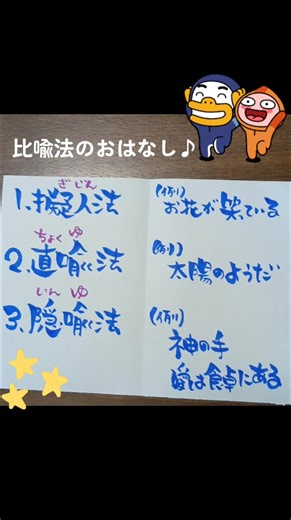 比喩法のおはなし♪
ぎ じん
1、擬人法
(例)
お花が笑っている
ちょく ゆ
2、直喩法
(例)
太陽のようだ
いん ゆ
3、隠喩法
(例)
神の手
愛は食卓にある